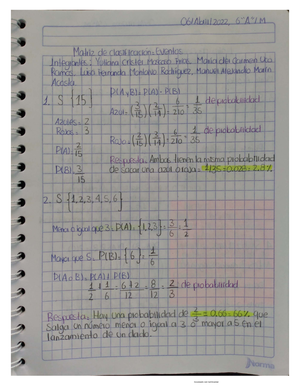 06/Abril/2022 6°"A" T.M
Matriz de clasificación. Eventos
Integrantes: Yuliana Cristel Matacio Ponce. María del Carmen Uto
Ramos. Luis Fernando Montaño Rodríguez. Manuel Alejandro Marín
Acosta
1. S {15}
Azules = 2
Rojos = 3
P(A): 2/15
P(B): 3/15
P(A∩B): P(A) · P(B)
Azul = (2/15)(3/14) = 6/210 = 1/35 de probabilidad
Rojo = (3/15)(2/14) = 6/210 = 1/35 de probabilidad
Respuesta: Ambas tienen la misma probabilidad
de sacar una azul o roja = 1/35 = 0.028 = 2.8%
2. S {1,2,3,4,5,6}
Menor o igual que 3. P(A): {1,2,3} = 3/6 = 1/2
Mayor que 5. P(B): {6} = 1/6
P(A∪B) = P(A) + P(B)
1/2 + 1/6 = 6+2/12 = 8/12 = 2/3 de probabilidad
Respuesta: Hay una probabilidad de 2/3 = 0.66 = 66% que
salga un número menor o igual a 3 o mayor a 5 en el
lanzamiento de un dado.
Norma